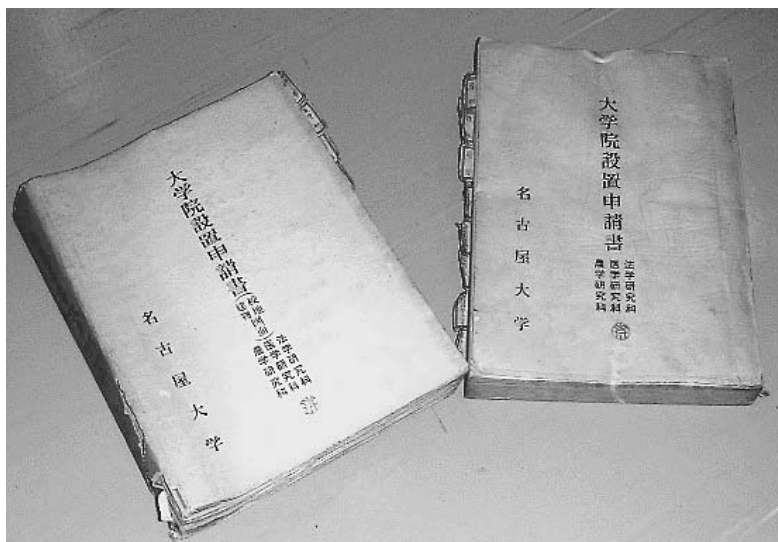 大学院設置申請書(校地図面
建物)
法学研究科
医学研究科
農学研究科
名古屋大学
大学院設置申請書
法学研究科
医学研究科
農学研究科
名古屋大学